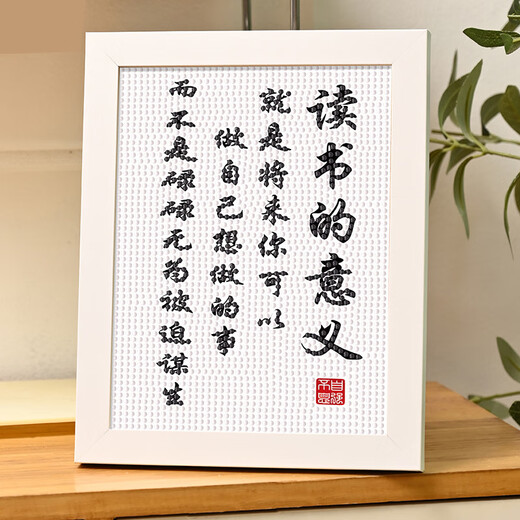 读书的意义
就是将来你可以
做自己想做的事
而不是碌碌无为被迫谋生
自强不息